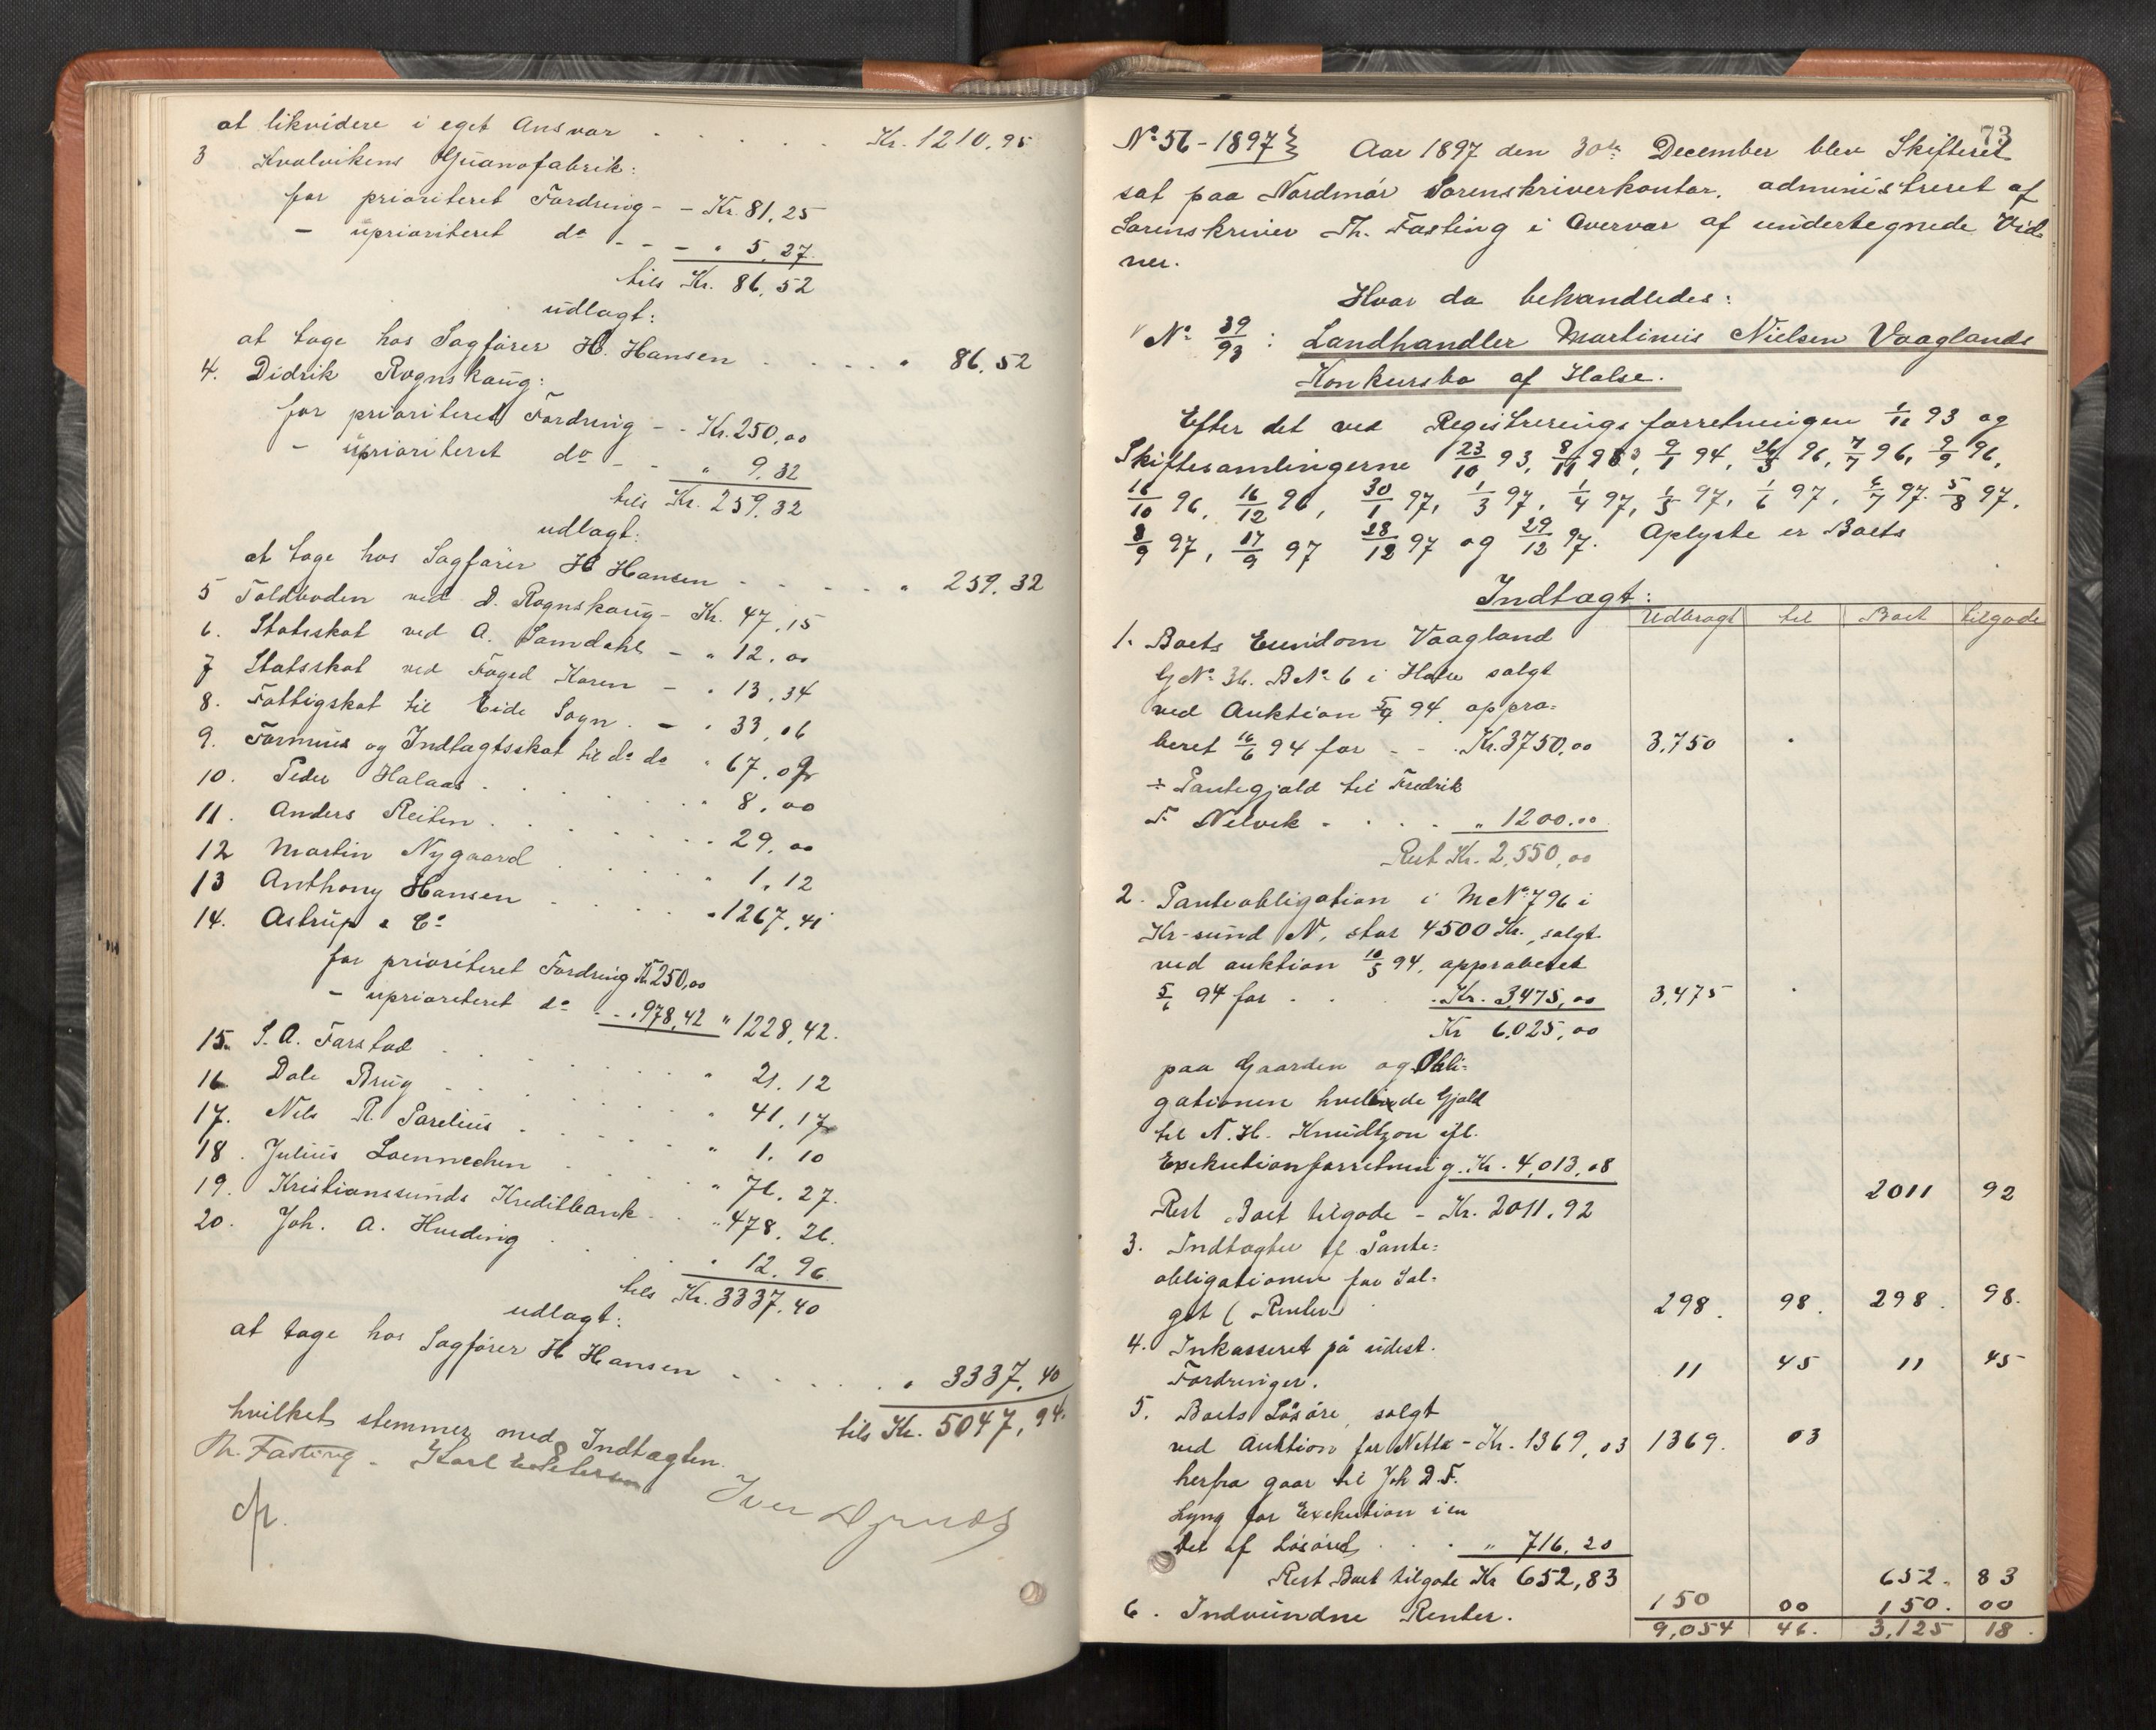 at likvidere i eget Ansvar . . . . Kr. 1210,95
3 Kvalvikens Guanofabrik:
for prioriteret Fordring - - Kr. 81,25
- uprioriteret do - - - " 5,27
tils Kr. 86,52
udlagt:
at tage hos Sagfører H. Hansen . . . . " 86,52
4. Didrik Rognskaug:
for prioriteret Fordring - - Kr. 250,00
- uprioriteret do - - " 9,32
tils Kr. 259,32
udlagt:
at tage hos Sagfører H Hansen - - - . . " 259.32
5 Toldboden ved D. Rognskaug - Kr. 47,15
6. Statsskat ved A. Samdahl - " 12,00
7 Statsskat ved Foged Koren - " 13,34
8. Fattigskat til Eide Sogn. - " 33,06
9. Formues og Indtægtsskat til do do " 67,09
10. Peder Halaas . . . . . " 8,00
11. Anders Reiten . . . . . . 29,00
12 Martin Nygaard . . . . " 1,12
13 Anthony Hansen . . . . " 1267,41
14. Astrup & Co
for prioriteret Fordring Kr 250,00
- uprioriteret do - - " 978,42 " 1228,42.
15. S. A. Farstad . . . . . " 21.12
16 Dale Brug . . . . . " 41,17
17. Nils R. Parelius . . . . . " 1.10
18. Julius Loennechen . . . " 76.27.
19. Kristianssunds Kreditbank . . " 478.26.
20. Joh. A. Hveding . . . . " 12.96
tils Kr. 3337.40
udlagt:
at tage hos Sagfører H Hansen . . . . . " 3337,40
tils Kr. 5047,94.
hvilket stemmer med Indtægten.
Th. Fasting. Karl E Petersen
Iver
73
No 56 - 1897 Aar 1897 den 30te December blev Skifteret
sat paa Nordmør Sorenskriverkontor, administreret af
Sorenskriver Th. Fasting i Overvær af undertegnede Vid-
ner.
Hvor da behandledes:
No 39/93 : Landhandler Martinus Nielsen Vaaglands
Konkursbo af Halse.
Efter det ved Registreringsforretningen 1/11 93 og
Skiftesamlingerne 23/10 93, 8/11 93, 9/1 94, 26/3 96, 7/7 96, 9/9 96,
16/10 96, 16/12 96, 30/1 97, 1/3 97, 1/4 97, 1/5 97, 1/6 97, 6/7 97. 5/8 97,
8/9 97, 17/9 97 28/12 97 og 29/12 97. Oplyste er Boets
Indtægt:
Udbragt til Boet tilgode
1. Boets Eiendom Vaagland
G No 36. B No 6 i Halse solgt
ved Auktion 5/4 94, appro-
beret 16/6 94 for - - . Kr. 3750,00 3,750 "
÷ Pantegjæld til Fredrik
F. Nelvik . . . . " 1200.00
Rest Kr. 2,550,00
2. Panteobligation i M No 796 i
Kr-sund N, stor 4500 Kr., solgt
ved auktion 10/5 94, approberet
5/6 94 for . . . Kr. 3475,00 3,475 "
Kr 6,025,00
paa Gaarden og Obli-
gationen hvilende Gjæld
til N. H. Knudtzon ifl.
Exekutionforretning. Kr. 4,013,08
Rest Boet tilgode - Kr. 2011.92 2011 92
3. Indtægter af Pante-
obligationen før Sal-
get (Renter) 298. 98. 298. 98.
4. Inkasseret på udest.
Fordringer. 11 45 11 45
5. Boets Løsøre, solgt
ved Auktion for Netto - Kr. 1369,03 1369. 03
herfra gaar til Joh D. F.
Lyng for Exekution i en
del af Løsøret . . . " 716.20
Rest Boet tilgode Kr 652,83 652. 83
6. Indvundne Renter. 150 00 150. 00
9,054 46. 3,125 18.